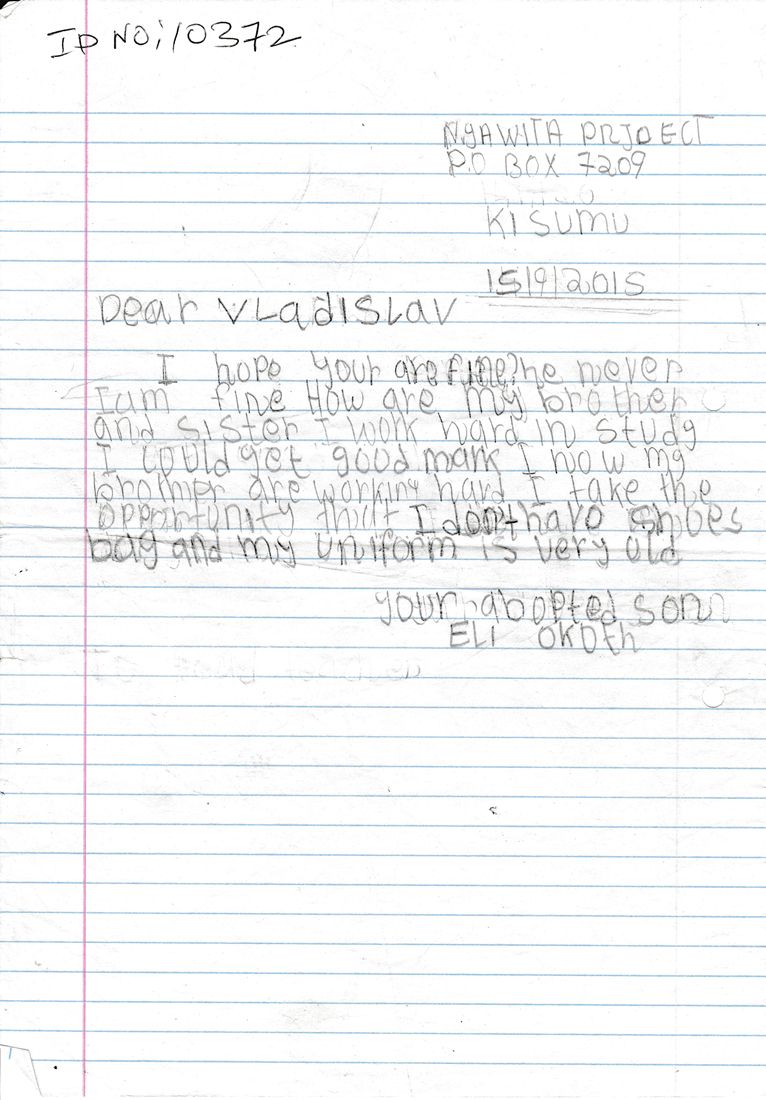 ID NO:10372
NYAWITA PRJOECT
P.O BOX 7209
KISUMU
15/9/2015
Dear VLadISLav
I hope your are fine? he never
Iam fine How are my brother
and SiSter I work hard in study
I could get good mark I now my
brother are working hard I take the
opportunity that I don't havo shoes
bag and my uniform is very old
your abopted son
ELI OKOth